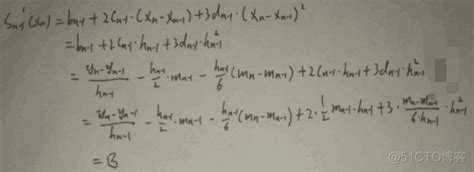 S'ₙ₋₁(xₙ) = bₙ₋₁ + 2cₙ₋₁·(xₙ - xₙ₋₁) + 3dₙ₋₁·(xₙ - xₙ₋₁)²
= bₙ₋₁ + 2cₙ₋₁·hₙ₋₁ + 3dₙ₋₁·hₙ₋₁²
= (yₙ - yₙ₋₁)/hₙ₋₁ - (hₙ₋₁/2)·mₙ₋₁ - (hₙ₋₁/6)(mₙ - mₙ₋₁) + 2cₙ₋₁·hₙ₋₁ + 3dₙ₋₁·hₙ₋₁²
= (yₙ - yₙ₋₁)/hₙ₋₁ - (hₙ₋₁/2)·mₙ₋₁ - (hₙ₋₁/6)(mₙ - mₙ₋₁) + 2·(1/2)mₙ₋₁·hₙ₋₁ + 3·((mₙ - mₙ₋₁)/(6·hₙ₋₁))·hₙ₋₁²
= B
@51CTO博客